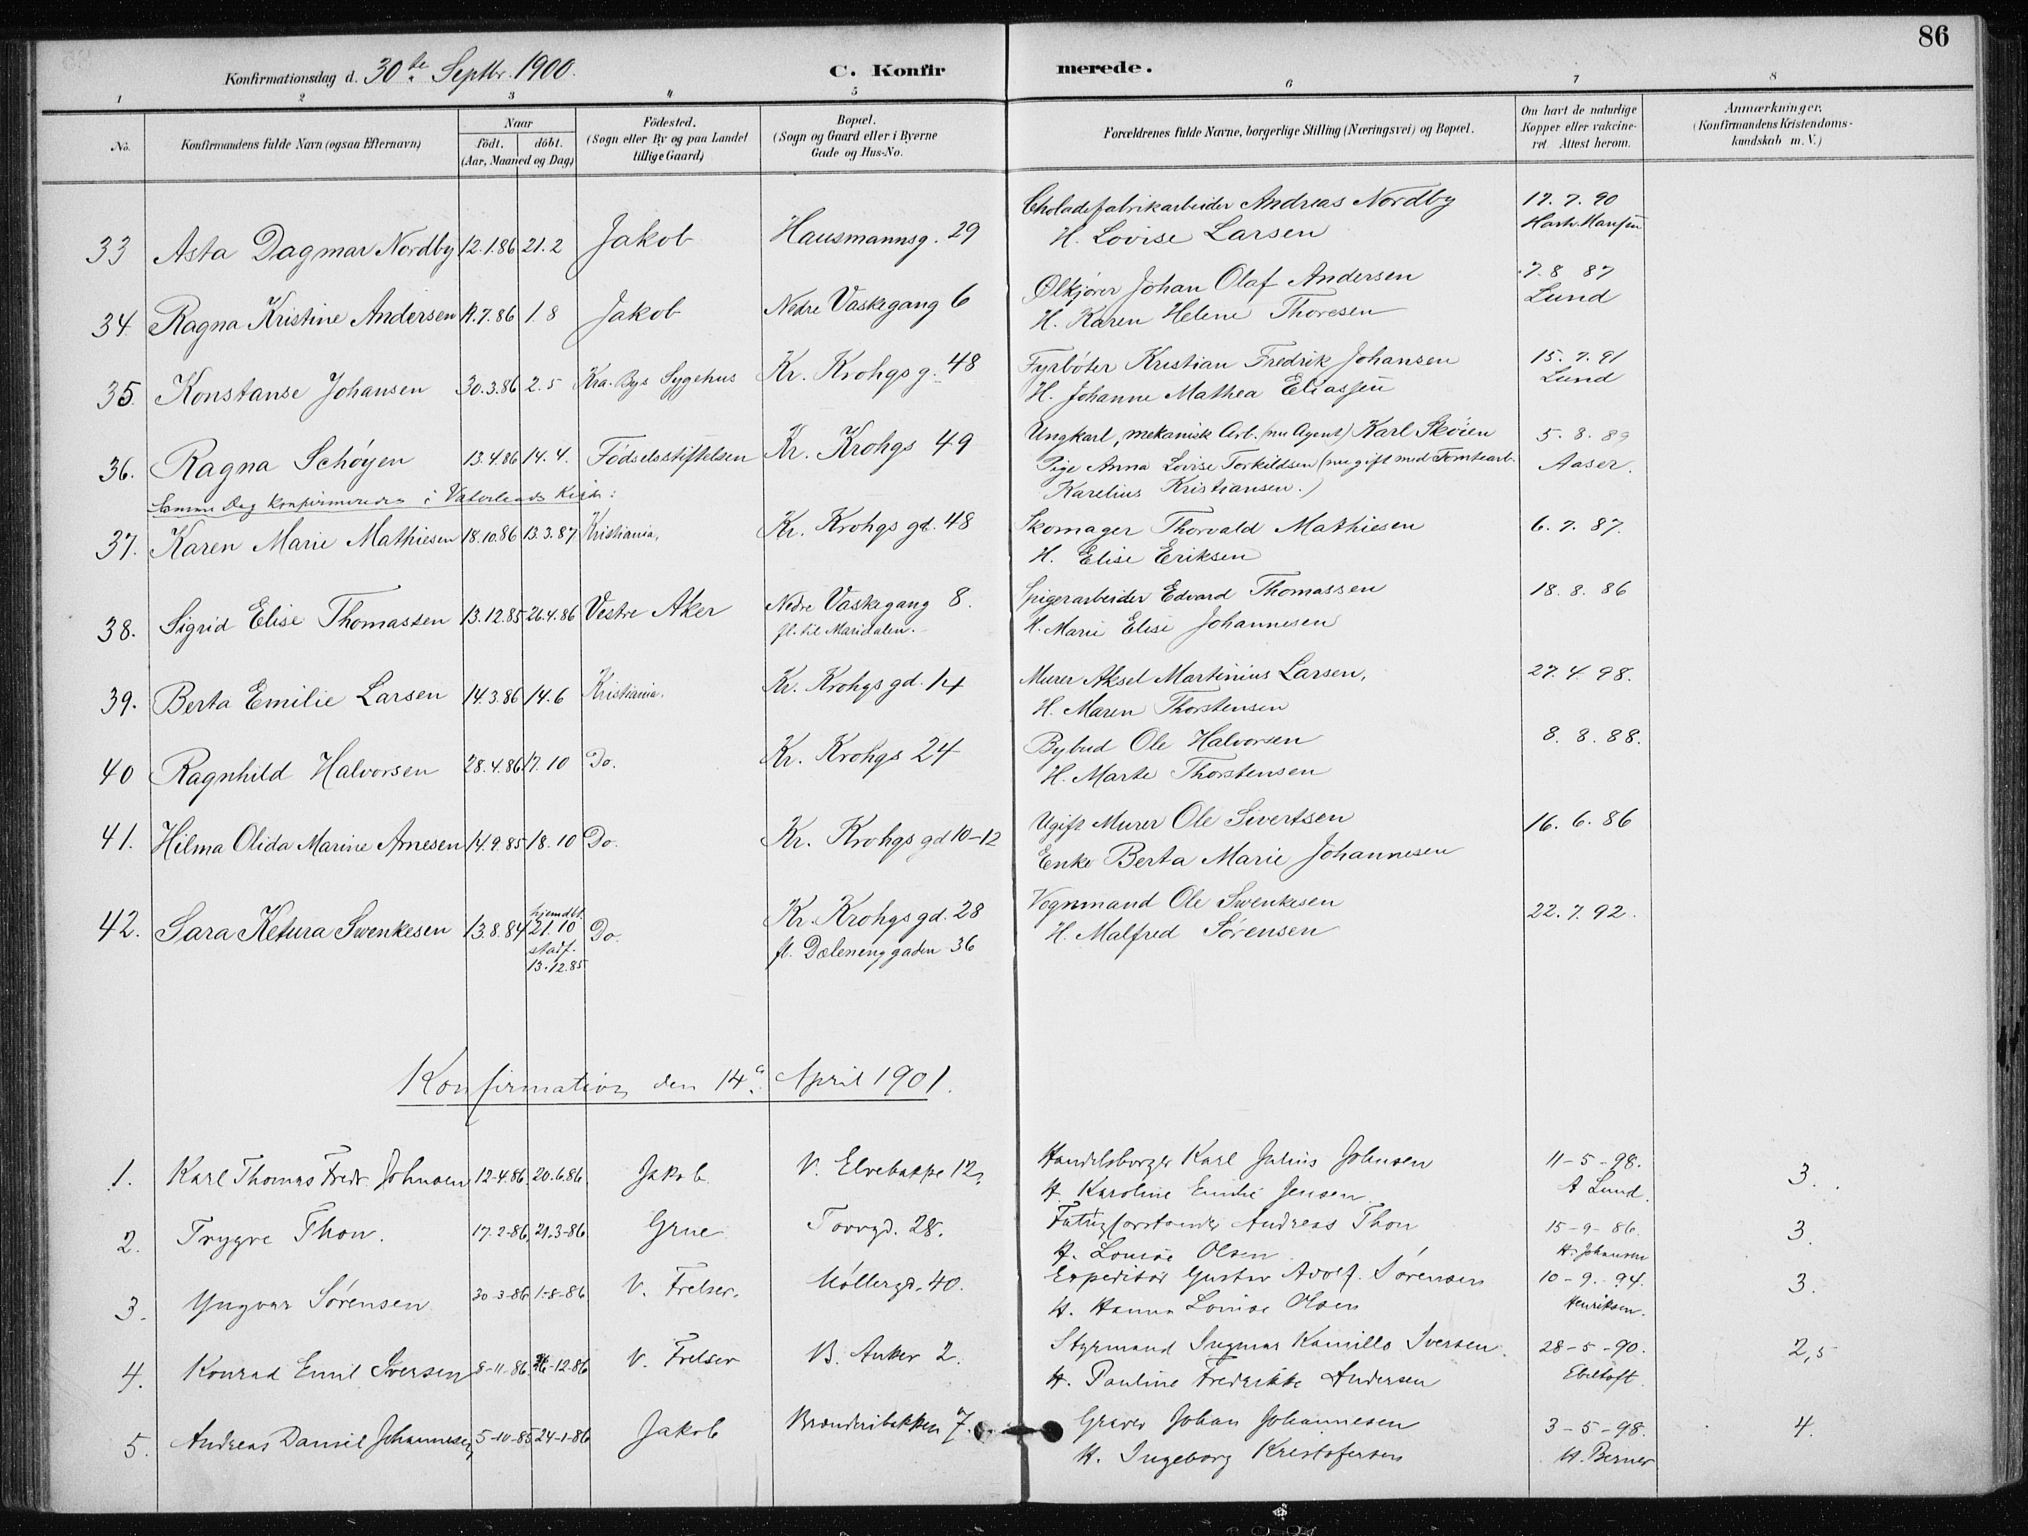 86
Konfirmationsdag d. 30de Septbr. 1900.
C. Konfirmerede.
1 2 3 4 5 6 7 8
No.
Konfirmandens fulde Navn (ogsaa Efternavn)
Naar
födt. döbt.
(Aar, Maaned og Dag)
Födested.
(Sogn eller By og paa Landet
tillige Gaard)
Bopæl.
(Sogn og Gaard eller i Byerne
Gade og Hus-No.
Forældrenes fulde Navne, borgerlige Stilling (Næringsvei) og Bopæl.
Om havt de naturlige
Kopper eller vakcine-
ret. Attest herom.
Anmærkninger.
(Konfirmandens Kristendoms-
kundskab m. V.)
33 Asta Dagmar Nordby 12.1.86 21.2 Jakob Hausmannsg. 29 Choladefabrikarbeider Andreas Nordby 17.7.90
H. Lovise Larsen
34. Ragna Kristine Andersen 11.7.86 1.8 Jakob Nedre Vaskegang 6 Ølkjører Johan Olaf Andersen 7.8 87
H. Karen Helene Thoresen Lund
35. Konstanse Johansen 30.3.86 2.5 Kra. Bys Sygehus Kr. Krohgs g. 48 Fyrbøter Kristian Fredrik Johansen 15.7.91
H. Johanne Mathea Eliassen Lund
36. Ragna Schøyen 13.4.86 14.4. Fødselsstiftelsen Kr. Krohgs 49 Ungkarl, mekanisk Arb. (nu Agent) Karl Skøien 5.8.89
Pige Anna Lovise Torkildsen (nu gift med Tomtearb. Aaser.
Karelius Kristiansen.)
Samme Dag konfirmeredes i Vaterlands Kirke:
37. Karen Marie Mathiesen 18.10.86 13.3.87 Kristiania, Kr. Krohgs gd. 48 Skomager Thorvald Mathiesen 6.7.87.
H. Elise Eriksen
38. Sigrid Elise Thomassen 13.12.85 26.4.86 Vestre Aker Nedre Vaskegang 8. Spigerarbeider Edvard Thomassen 18.8.86
fl. til Maridalen. H. Marie Elise Johannesen
39. Berta Emilie Larsen 14.3.86 14.6 Kristiania. Kr. Krohgs gd. 14 Murer Aksel Martinius Larsen, 27.4 98.
H. Maren Thorstensen
40 Ragnhild Halvorsen 28.4.86 17.10 Do. Kr. Krohgs 24 Bybud Ole Halvorsen 8.8.88.
H. Marte Thorstensen
41. Hilma Olida Marine Arnesen 14.9.85 18.10 Do. Kr. Krohgs gd 10-12 Ugift Murer Ole Sivertsen 16.6.86
Enke Berta Marie Johannesen
42. Sara Ketura Swenkesen 13.8.84 hjemdbt. 21.10 Do. Kr. Krohgs gd. 28 Vognmand Ole Swenkesen 22.7.92.
stadf. 13.12.85 fl. Dæleneng gaden 36 H. Malfred Sørensen
Konfirmation den 14de April 1901.
1. Karl Thomas Fredr. Johnsen 12-4.86 20.6.86 Jakob V. Elvebakke 12, Handelsborger Karl Julius Johnsen 11-5-98. 3.
H. Karoline Emilie Jensen A Lund.
2. Trygve Thon. 17.2-86, 21.3-86 Grue Torvgd. 28. Andreas Thon 15-9-86. 3.
H. Louise Olsen H. Johansen
3. Yngvar Sørensen 30.3-86 1-8-86 V. Frelser. Møllergd. 40. Expeditør Gustav Adolf. Sørensen 10-9.94. 3.
H. Hanna Louise Olsen Henriksen.
4. Konrad Emil Iversen 8-11-86. 26-12-86 V. Frelser B. Anker 2. Styrmand Ingmar Kamillo Iversen. 28-5-90. 2,5
H. Pauline Fredrikke Andersen Ebeltoft.
5. Andreas Daniel Johannesen 5-10-85 24-1-86 Jakob Brænderibakken 7. Graver Johan Johannesen 3-5-98. 4.
H. Ingeborg Kristofersen H. Berner